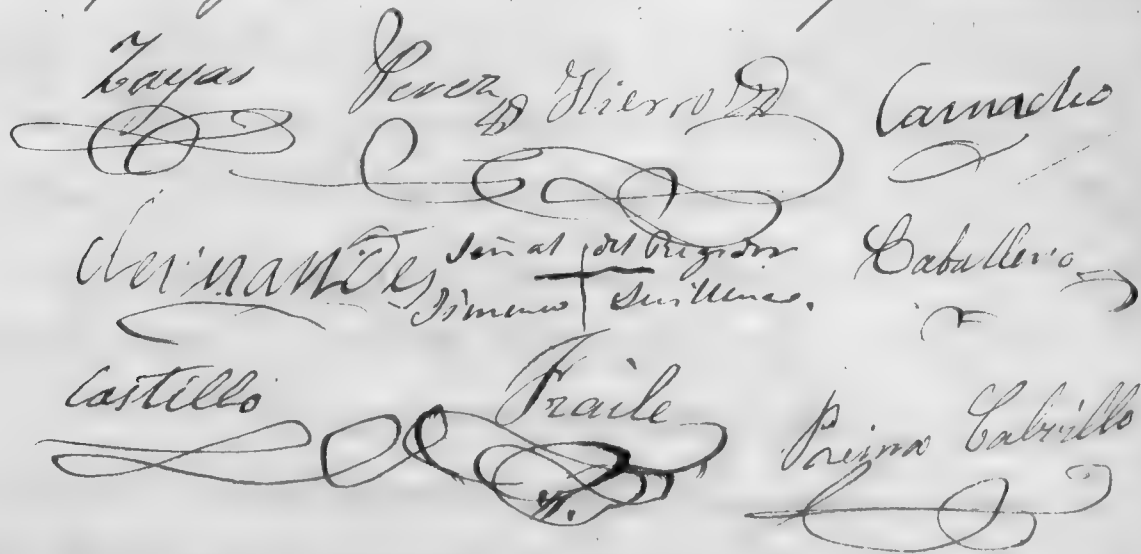 Zayas Perez Hierro Camacho
Hernandes Señal del Regidor Caballero
Jimenez Guillermo.
Castillo Fraile Reina Cabrillo